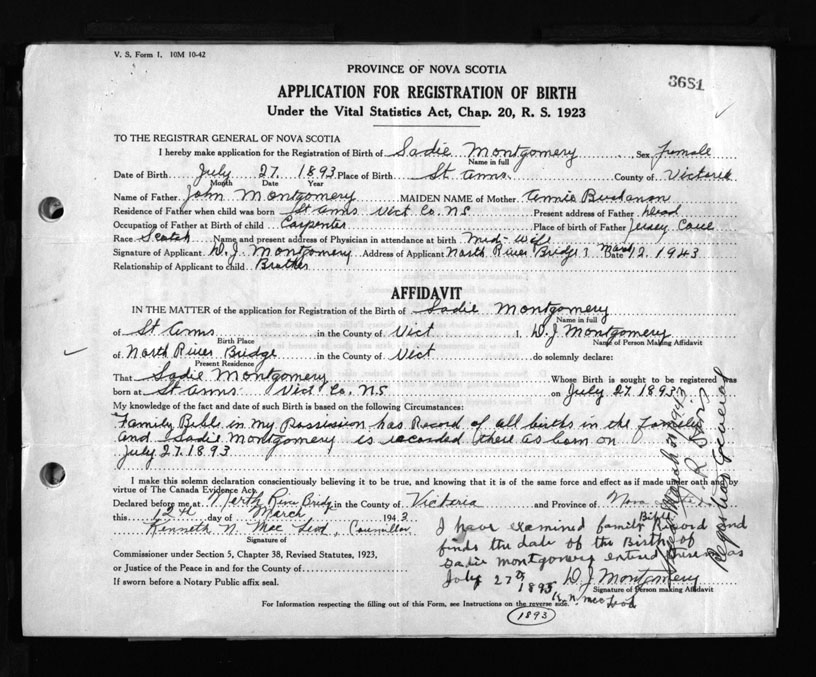 V. S. Form 1. 10M 10-42
PROVINCE OF NOVA SCOTIA
3681
APPLICATION FOR REGISTRATION OF BIRTH
Under the Vital Statistics Act, Chap. 20, R. S. 1923
TO THE REGISTRAR GENERAL OF NOVA SCOTIA
I hereby make application for the Registration of Birth of Sadie Montgomery, Sex female
Name in full
Date of Birth July 27 1893 Place of Birth St Anns County of Victoria
Month Date Year
Name of Father John Montgomery MAIDEN NAME of Mother Annie Buchanan
Residence of Father when child was born St Anns Vict Co. N S Present address of Father dead
Occupation of Father at Birth of child Carpenter Place of birth of Father Jersey Cove
Race Scotch Name and present address of Physician in attendance at birth Mid-wife
Signature of Applicant D. J. Montgomery Address of Applicant North River Bridge Date March 12 1943
Relationship of Applicant to child Brother
AFFIDAVIT
IN THE MATTER of the application for Registration of the Birth of Sadie Montgomery
Name in full
of St Anns in the County of Vict I, D. J Montgomery
Birth Place Name of Person Making Affidavit
of North River Bridge in the County of Vict do solemnly declare:
Present Residence
That Sadie Montgomery Whose Birth is sought to be registered was
born at St Anns Vict Co. N S on July 27. 1893
My knowledge of the fact and date of such Birth is based on the following Circumstances:
Family Bible in my Possission has Record of all births in the family
and Sadie Montgomery is recorded there as born on
July 27. 1893
I make this solemn declaration conscientiously believing it to be true, and knowing that it is of the same force and effect as if made under oath and by
virtue of The Canada Evidence Act.
Declared before me at North River Bridge in the County of Victoria and Province of Nova
this 12th day of March 1943
Kenneth N. Mac Leod, Councillor
Signature of
Commissioner under Section 5, Chapter 38, Revised Statutes, 1923,
or Justice of the Peace in and for the County of
If sworn before a Notary Public affix seal.
I have examined family Bible Record and
finds the date of the Birth of
Sadie Montgomery entered therein as
July 27th 1893
D. J Montgomery
Signature of Person making Affidavit
K. N. Mac Leod
For Information respecting the filling out of this Form, see Instructions on the reverse side.
1893
Registrar General